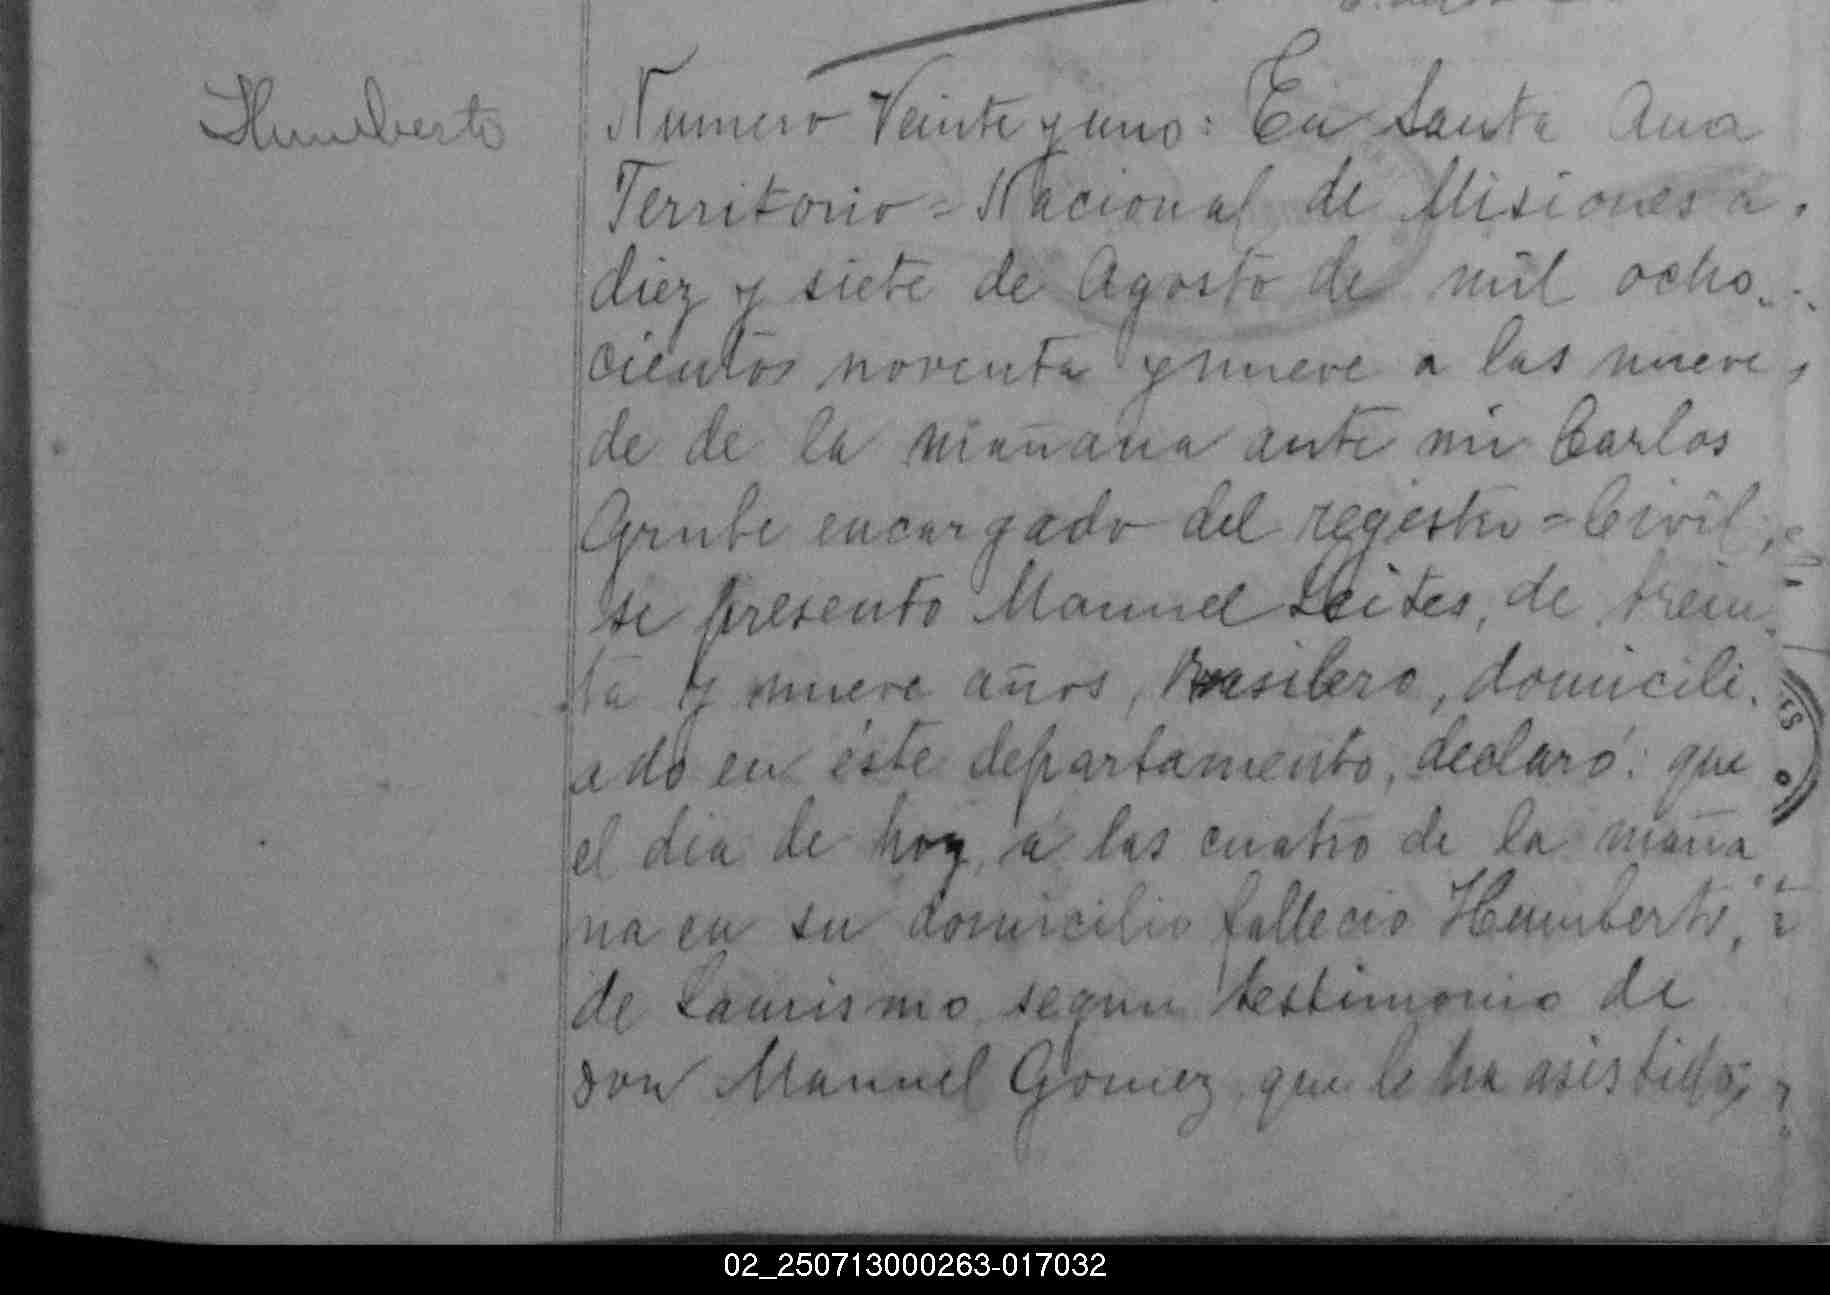 Humberto
Numero Veinte y uno: En Santa Ana
Territorio = Nacional de Misiones a
diez y siete de Agosto de mil ocho
cientos noventa y nueve a las nueve
de de la mañana ante mi Carlos
Grube encargado del registro = Civil,
se presento Manuel Leites, de trein
ta y nueve años, Brasilero, domicili
ado en éste departamento, declaró: que
el dia de hoy, á las cuatro de la maña
na en su domicilio fallecio Humberto,
de segun testimonio de
don Manuel Gomez que le ha asistido,
02_250713000263-017032